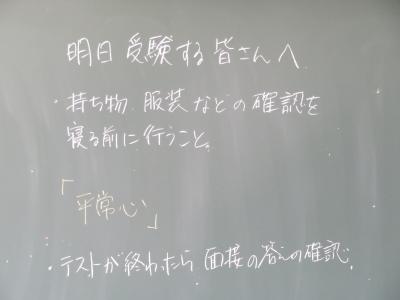 明日 受験する 皆さんへ
・持ち物、服装などの確認を
寝る前に行うこと。
「平常心」
・テストが終わったら 面接の答えの確認。